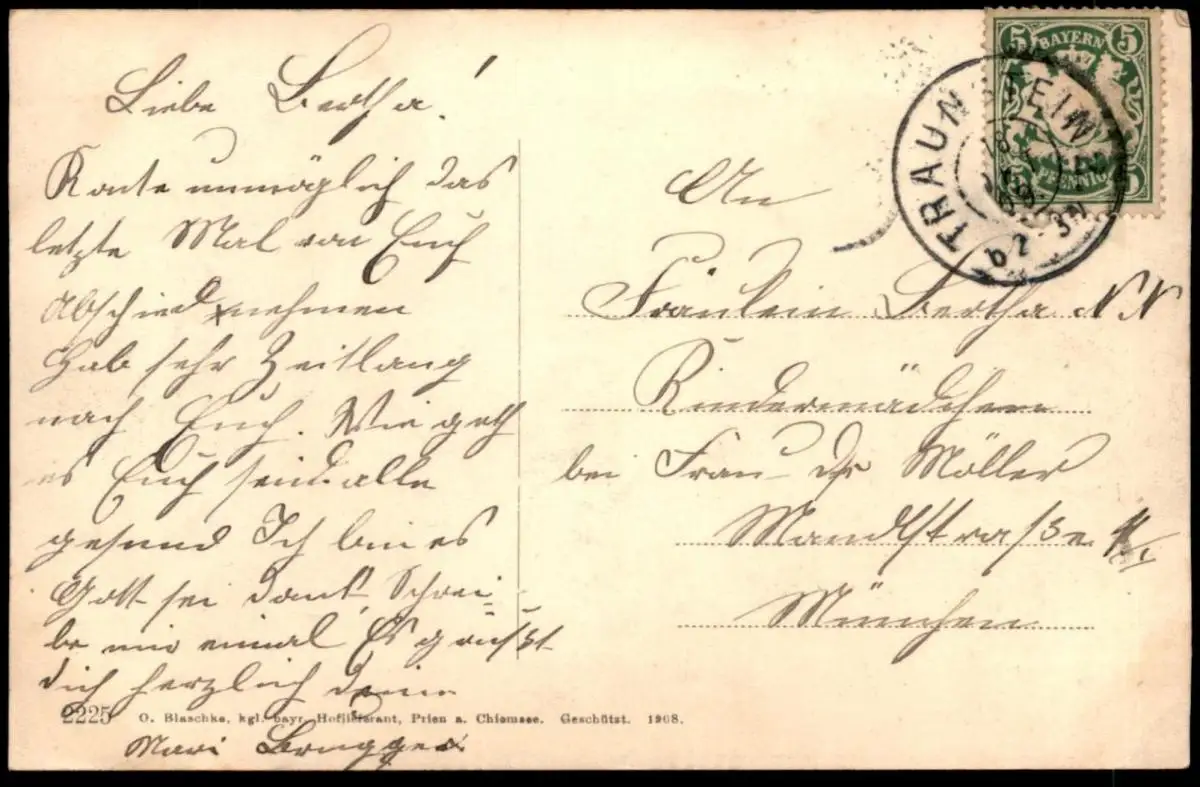 Liebe Bertha!
Konte unmöglich das
letzte Mal von Euch
Abschied nehmen
Hab sehr Zeitlang
nach Euch. Wie geth
es Euch seid alle
gesund Ich bin es
Gott sei dank, Schrei-
be mir einmal Es grüßt
dich herzlich deine
Mari Brugger
2225 O. Blaschke, kgl. bayr. Hoflieferant, Prien a. Chiemsee. Geschützt. 1908.
5 BAYERN 5
5 PFENNIG 5
TRAUNSTEIN
An
Fräulein Bertha N N
Kindermädchen
bei Frau Dr Möller
Mandlstraße
München